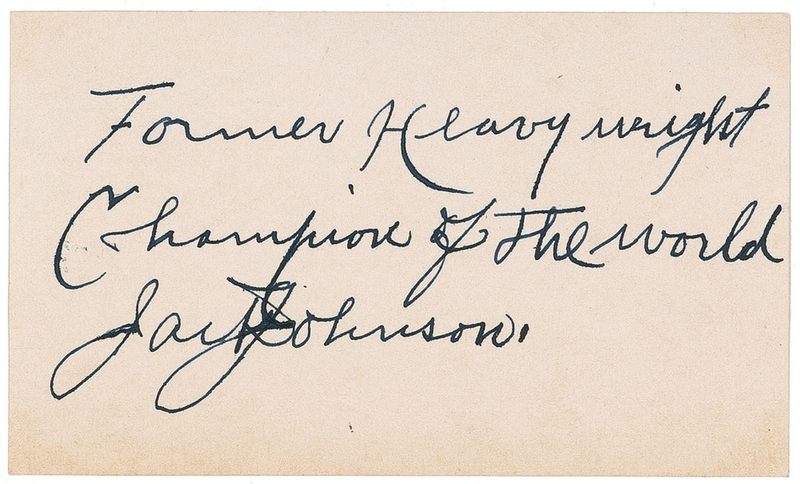 Former Heavy wright
Champion of the world
Jack Johnson.